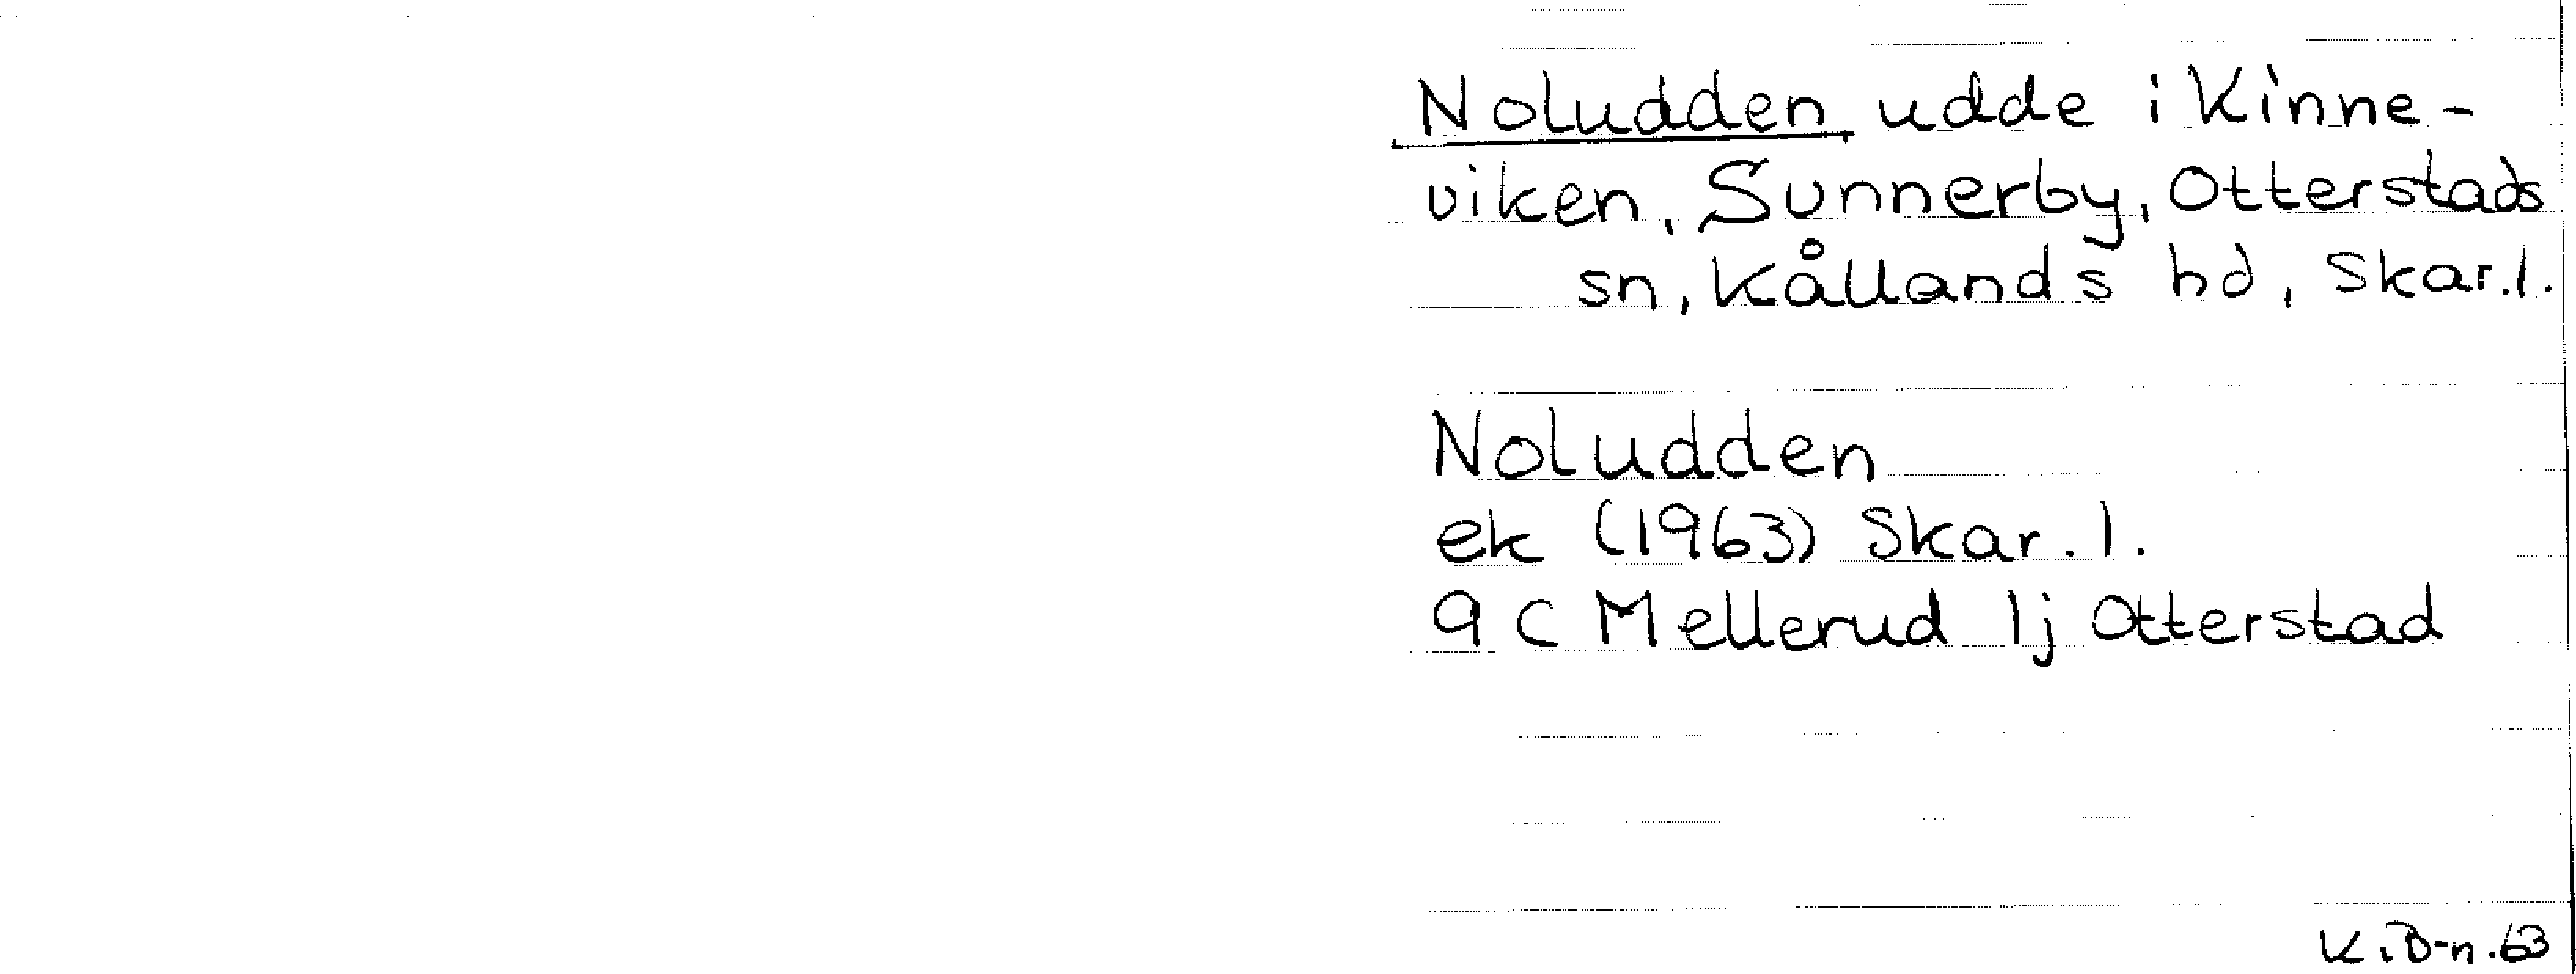 Noludden, udde i Kinne-
viken, Sunnerby, Otterstads
sn, Kållands hd, Skar.l.
Noludden
ek (1963) Skar.l.
9 C Mellerud 1j Otterstad
K.D-n.63